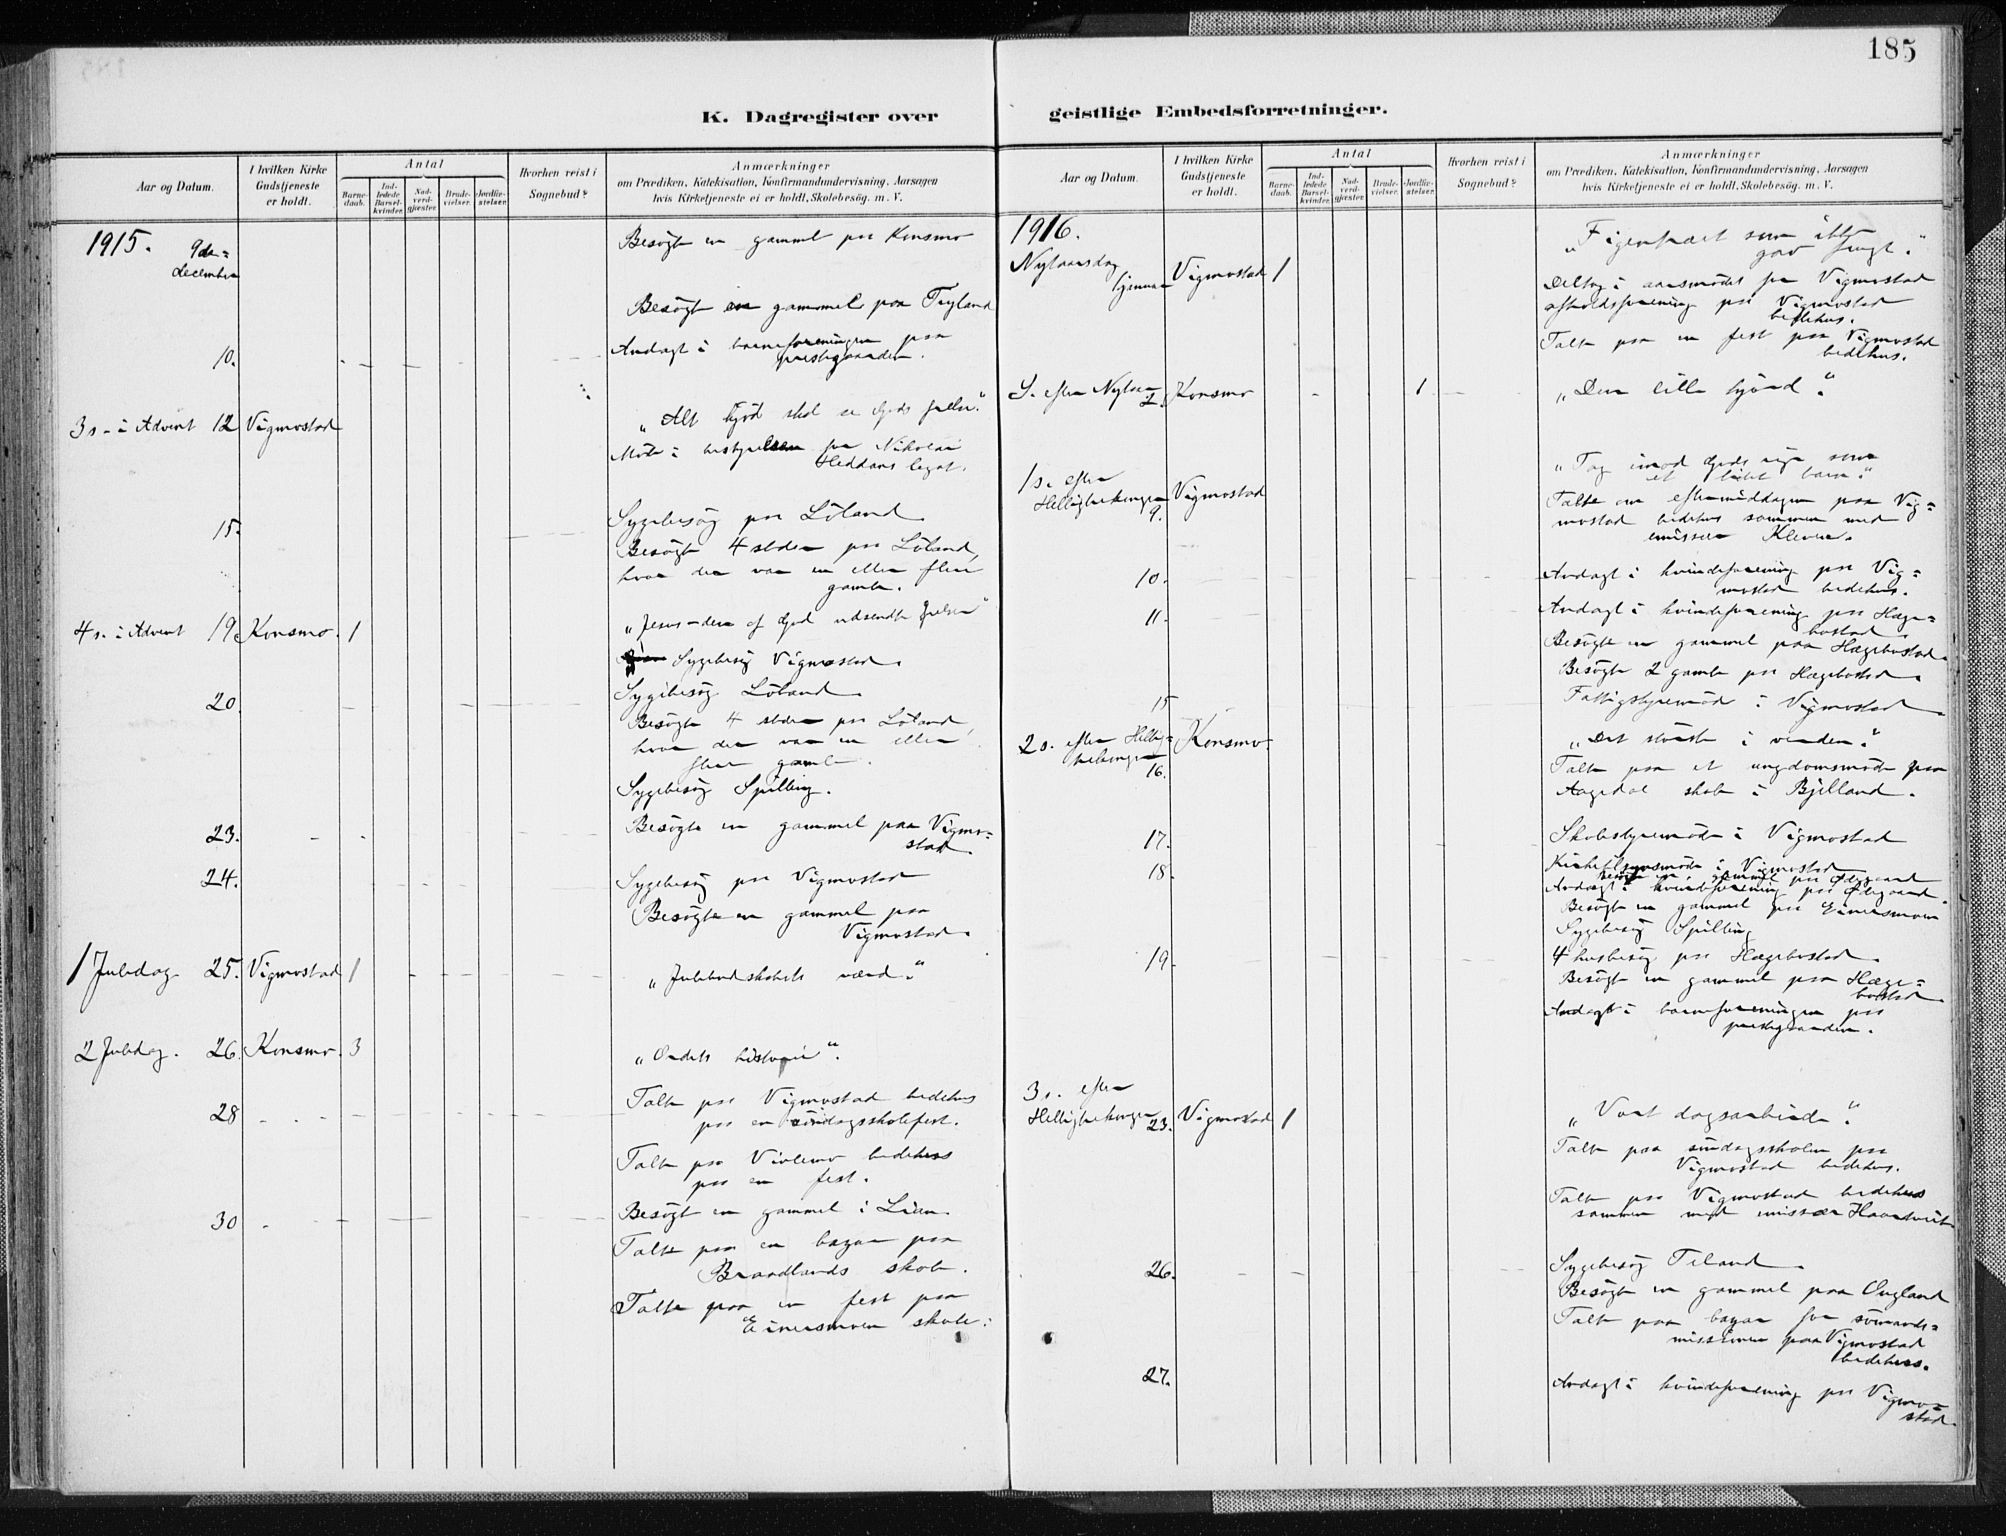 185
K. Dagregister over geistlige Embedsforretninger.
Aar og Datum.
I hvilken Kirke Gudstjeneste er holdt.
Antal
Barne-daab.
Ind-ledede Barsel-kvinder.
Nad-verd-gjæster.
Brude-vielser.
Jordfæ-stelser.
Hvorhen reist i Sognebud?
Anmærkninger
om Prædiken, Katekisation, Konfirmandundervisning, Aarsagen
hvis Kirketjeneste ei er holdt, Skolebesøg. m. V.
1915. 9de december
Besøgte en gammel paa Konsmo
Besøgt en gammel paa Tryland
10.
Andagt i barneforeningen paa
prestegaarden.
3 s. i Advent 12 Vigmostad
„Alt kjød skal se Guds frelse."
Møte i bestyrelsen for Nikolai
Heddans legat.
15.
Sygebesøg paa Løland
Besøgte 4 steder paa Løland,
hvor der var en eller flere
gamle.
4 s. i Advent 19. Konsmo. 1
„Jesus - den af Gud udsendte frelser"
Sygebesøg Vigmostad.
20.
Sygebesøg Løland.
Besøgte 4 steder paa Løland
hvor der var en eller
flere gamle.
Sygebesøg Spilling.
23.
Besøgte en gammel paa Vigmo=
stad.
24.
Sygebesøg paa Vigmostad
Besøgte en gammel paa
Vigmostad.
1 Juledag 25. Vigmostad 1
„Julebudskabets værd."
2 Juledag. 26. Konsmo. 3
„Ordets historie".
28
Talte paa Vigmostad bedehus
paa en søndagsskolefest.
Talte paa Viblemo bedehus
paa en fest.
30
Besøgt en gammel i Lian.
Talte paa en bazar paa
Braadlands skole.
Talte paa en fest paa
Einersmoen skole.
Aar og Datum.
I hvilken Kirke Gudstjeneste er holdt.
Antal
Barne-daab.
Ind-ledede Barsel-kvinder.
Nad-verd-gjæster.
Brude-vielser.
Jordfæ-stelser.
Hvorhen reist i Sognebud?
Anmærkninger
om Prædiken, Katekisation, Konfirmandundervisning, Aarsagen
hvis Kirketjeneste ei er holdt, Skolebesøg. m. V.
1916.
Nytaarsdag 1 januar Vigmostad 1
„Figentræet som ikke
gav frugt."
Deltog i aarsmødet for Vigmostad
afholdsforening paa Vigmostad
bedehus.
Talte paa en fest paa Vigmostad
bedehus.
S. efter Nytaar 2. Konsmo 1
„Den lille hjord".
1 s. efter
Helligtrekonger 9. Vigmostad
„Tag imod Guds rige som
et lidet barn."
Talte om eftermiddagen paa Vig=
mostad bedehus sammen med
emissær Kleven.
10.
Andagt i kvindeforening paa Vig=
mostad bedehus.
11.
Andagt i kvindeforening paa Hæge=
bostad.
Besøgte en gammel paa Hægebostad.
Besøgte 2 gamle paa Hægebostad.
15
Fattigstyremøde i Vigmostad
2 s. efter Hellig=
trekonger 16. Konsmo.
„Det største i verden."
Talte paa et ungdomsmøde paa
Aagedal skole i Bjelland.
17.
Skolestyremøde i Vigmostad
18.
Kirketilsynsmøde i Vigmostad
Besøgt en gammel paa Ødegaard
Andagt i kvindeforening paa Ødegaard.
Besøgte en gammel paa Einersmoen
Sygebesøg Spilling
19.
4 husbesøg paa Hægebostad.
Besøgte en gammel paa Hæge=
bostad.
Andagt i barneforeningen paa
prestegaarden.
3 s. efter
Helligtrekonger 23. Vigmostad 1
„Vort dagsarbeide".
Talte paa søndagsskolen paa
Vigmostad bedehus.
Talte paa Vigmostad bedehus
sammen med emissær Haandtveit
26.
Sygebesøg Teland.
Besøgte en gammel paa
Talte paa bazar for sømands=
missionen paa Vigmostad
bedehus.
27.
Andagt i kvindeforening paa Vigmo=
stad.